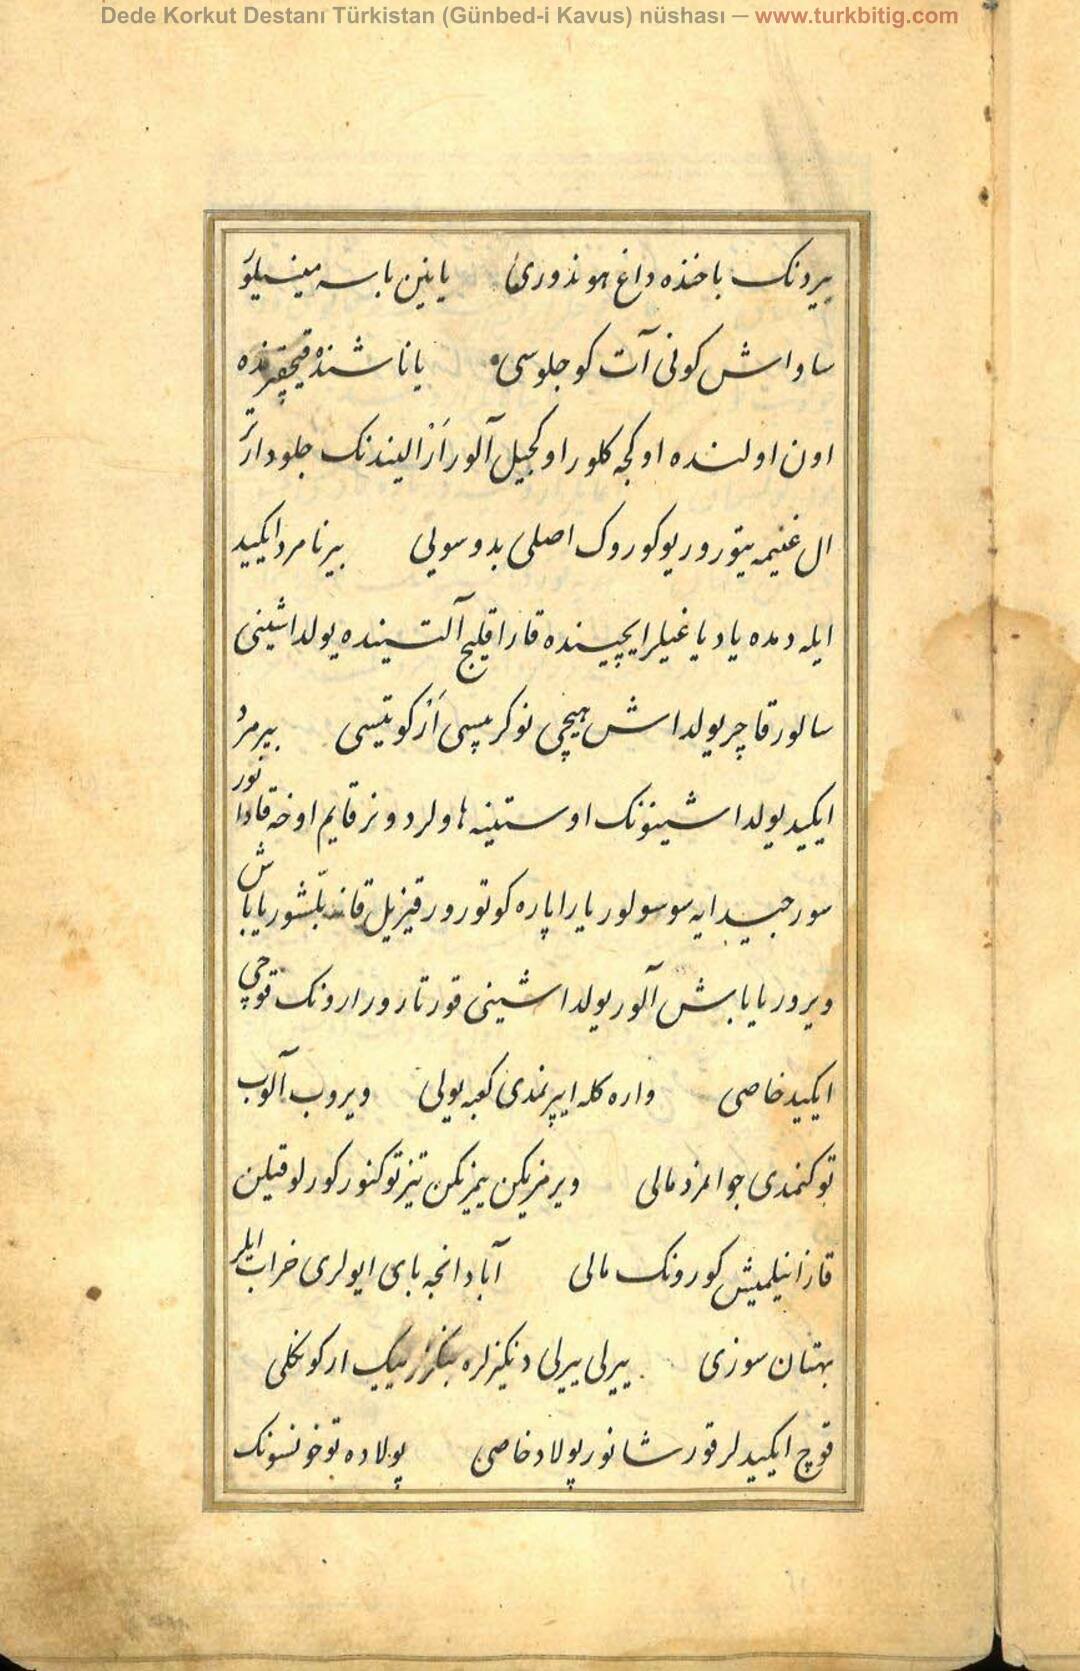 Dede Korkut Destanı Türkistan (Günbed-i Kavus) nüshası — www.turkbitig.com
بیردنک باخنده داغ هوندوری یانین باسه مینسیلو
ساواش کونی آت کوجلوسی یاناشنده قیچقیرنده
اون اولنده اوکجه کلور اوکجیل آلور اَزْالیندنک جلودارتر
ال غنیمه یتورور یوکوروک اصلی بدوسویی بیرنامرد ایکید
ایله دمده یاد یاغیلر ایچینده قارا قلیج آلتینده یولداشینی
سالور قاچر یولداش هیچی نوکر پسی اَرْکوتیسی بیرمرد
ایکید یولداشینونک اوستینه هاولردونر قایم اوخه قادانور
سورجیدایه سوسولور یارا پاره کوتورور قیزیل قانه بلشور یاباش
ویرور یاباش آلور یولداشینی قورتارور ارونک قوچی
ایکید خاصی واره کله ایپرنمدی کعبه یولی ویروب آلوب
توکنمدی جوانمرد مالی ویرمزیکن ییمزیکن تیز توکنور کورلوقیلن
قازانیلمیش کورونک مالی آبادانجه بای ایولری خراب ایلر
بهتان سوزی ییرلی ییرلی دنکیزلره بنکزر بیک ارکونکلی
قوچ ایکیدلر قورشانور پولاد خاصی پولاده توخونسونک